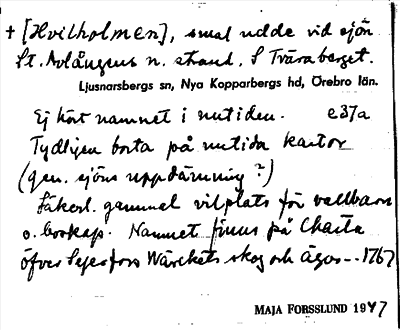 + [Hvilholmen], smal udde vid sjön
St. Avlångens n. strand, S Tvära berget.
Ljusnarsbergs sn, Nya Kopparbergs hd, Örebro län.
Ej hört namnet i nutiden. e37a
Tydligen borta på nutida kartor
(gen. sjöns uppdämning?)
Säkerl. gammal vilplats för vallbarn
o. boskap. Namnet finns på Charta
öfver Wärckets skog och ägor--1767
MAJA FORSSLUND 1947